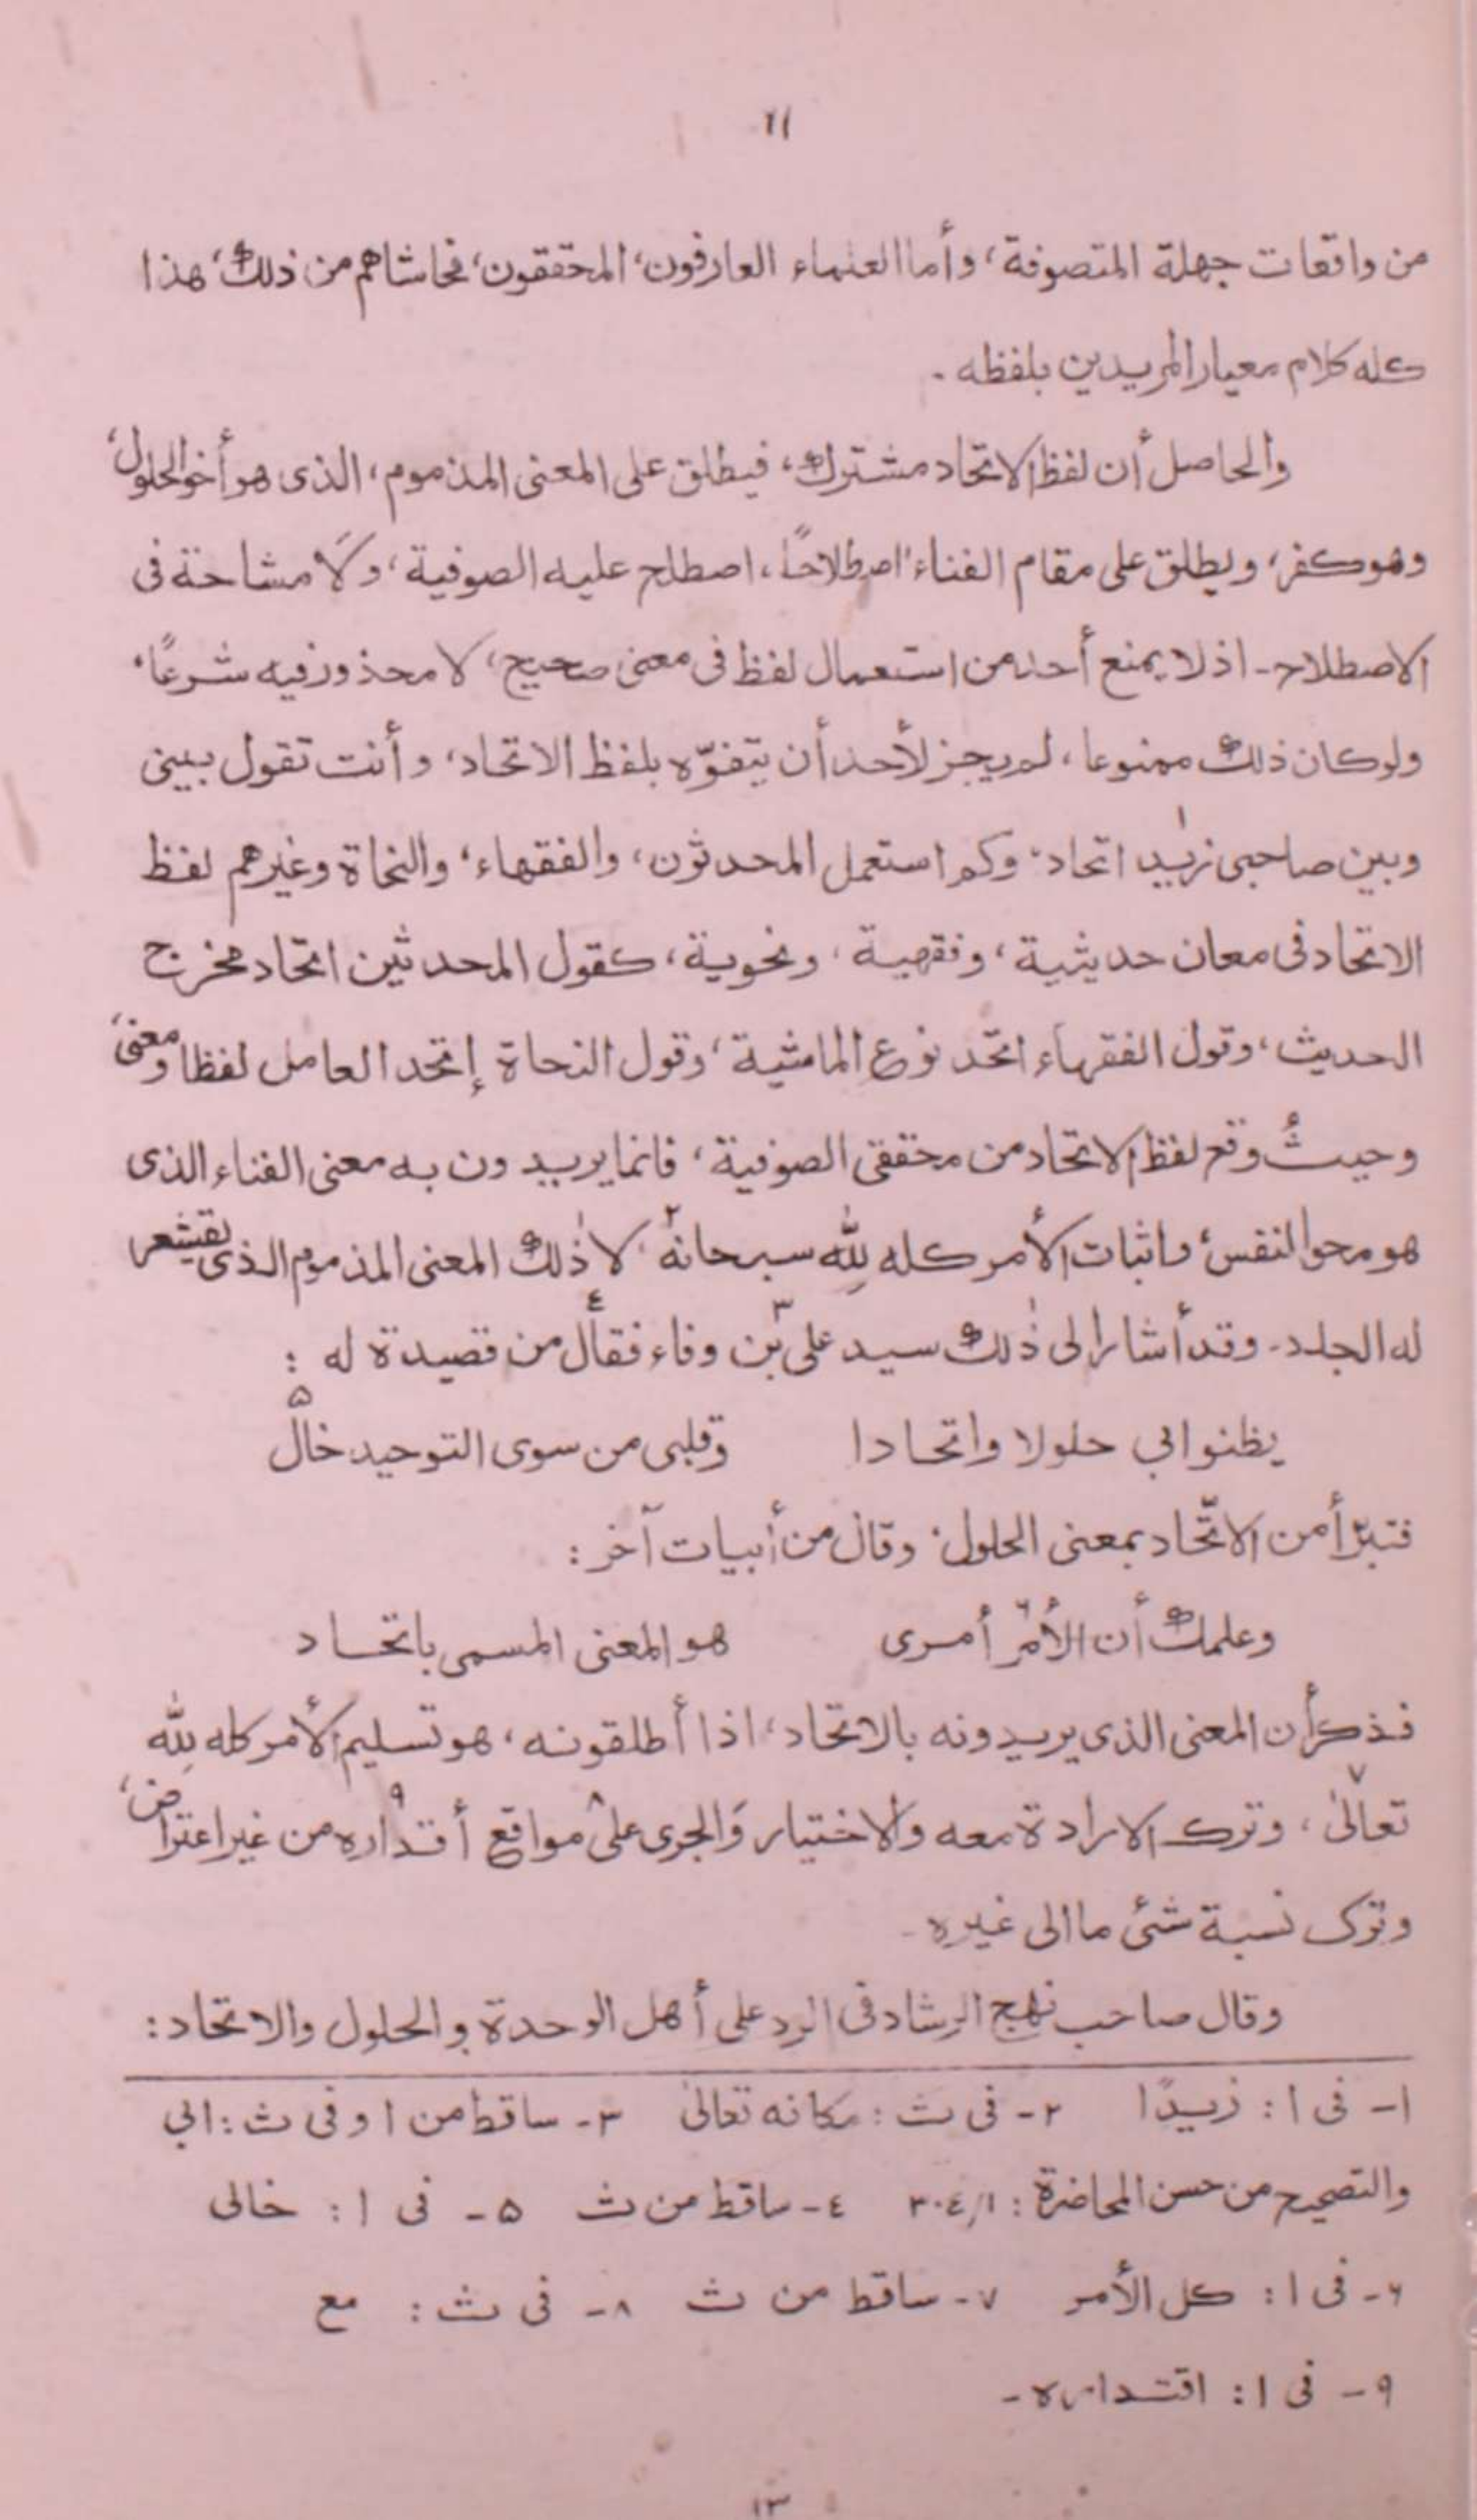 ١١
من واقعات جهلة المتصوفة، وأما العلماء العارفون، المحققون، فحاشاهم من ذلك، هذا
كله كلام معيار المريدين بلفظه .
والحاصل أن لفظ الاتحاد مشترك، فيطلق على المعنى المذموم، الذى هو أخو الحلول،
وهو كفر، ويطلق على مقام الفناء اصطلاحًا، اصطلح عليه الصوفية، ولَا مشاحة فى
الاصطلاح - اذ لا يمنع أحد من استعمال لفظ فى معنى صحيح، لا محذور فيه شرعًا،
ولو كان ذلك ممنوعا، لم يجز لأحد أن يتفوّه بلفظ الاتحاد، وأنت تقول بينى
وبين صاحبى زيد١ اتحاد، وكم استعمل المحدثون، والفقهاء، والنحاة وغيرهم لفظ
الاتحاد فى معان حديثية، وفقهية، ونحوية، كقول المحدثين اتحاد مخرج
الحديث، وقول الفقهاء اتحد نوع الماشية، وقول النحاة إتحد العامل لفظا ومعنى،
وحيثُ وقع لفظ الاتحاد من محققى الصوفية، فانما يريدون به معنى الفناء الذى
هو محو النفس، واثبات الأمر كله لِلّٰه سبحانه٢ لا ذٰلك المعنى المذموم الذى تقشعر
له الجلد - وقد أشار إلى ذٰلك سيد على بن٣ وفاء فقال٤ من قصيدة له :
يظنوا بي حلولا واتحادا وقلبى من سوى التوحيد خال٥
فتبرّأ من الاتّحاد بمعنى الحلول، وقال من أبيات آخر :
وعلمك أن الأمر٦ أمرى هو المعنى المسمى باتحاد
فذكر أن المعنى الذى يريدونه بالاتحاد، اذا أطلقونه، هو تسليم الأمر كله لِلّٰه
تعالىٰ٧، وترك الارادة معه والاختيار وَالجرى علىٰ٨ مواقع أقداره٩ من غير اعتراض،
وترك نسبة شئ ما الى غيره -
وقال صاحب نهج الرشاد فى الرد على أهل الوحدة والحلول والاتحاد :
١- فى ا : زيدًا ٢- فى ث : مكانه تعالىٰ ٣- ساقط من ا وفى ث : ابي
والتصحيح من حسن المحاضرة : ٣٠٤/١ ٤- ساقط من ث ۵- فى ا : خالى
۶- فى ا : كل الأمر ٧- ساقط من ث ٨- فى ث : مع
٩- فى ا : اقتداره -
١٣